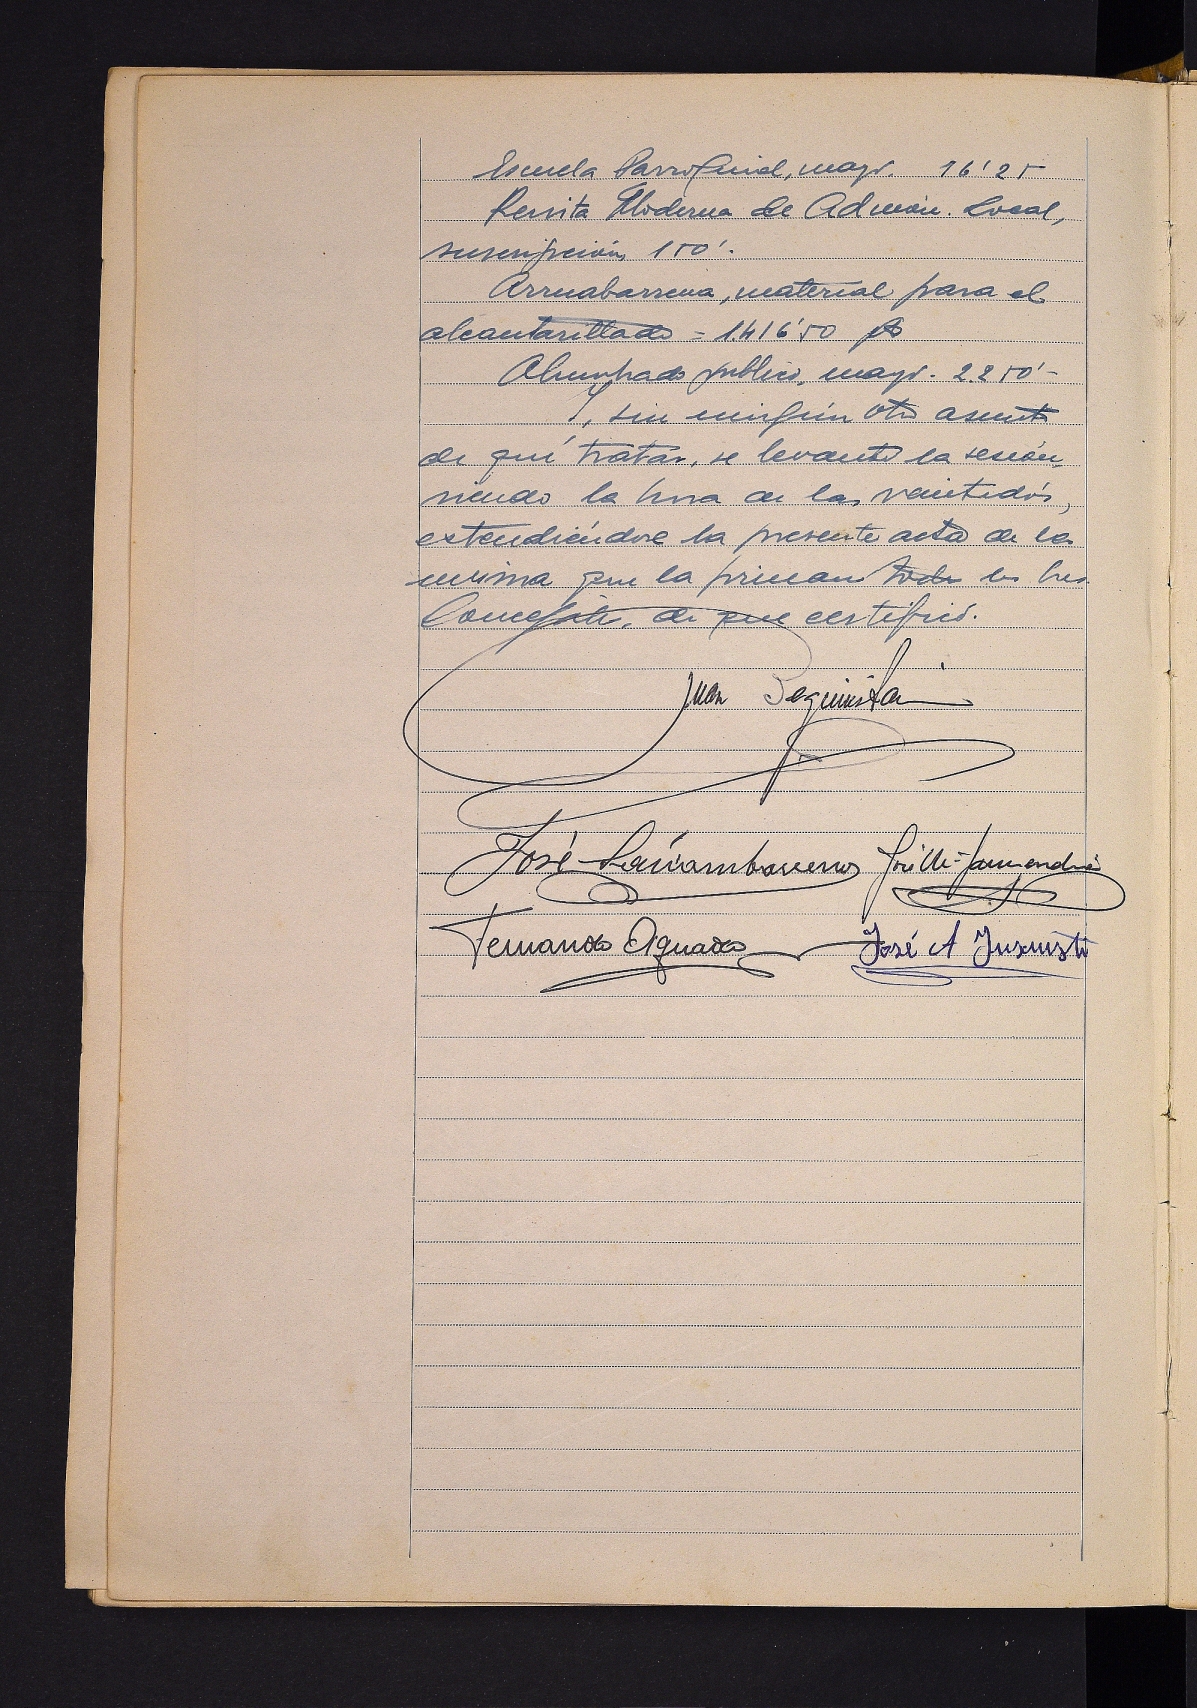 Escuela Parroquial, mayo. 16'25
Revista Moderna de Admón. Local,
suscripción, 150'-
Arruabarrena, material para el
alcantarillado = 1.416'50 pts
Alumbrado público, mayo. 2.250'-
Y, sin ningún otro asunto
de qué tratar, se levantó la sesión,
siendo la hora de las veintidós,
extendiéndose la presente acta de la
misma que la firman todos los Sres.
Concejales, de que certifico.
Juan Beguiristain
José
Fernando Aguado José A